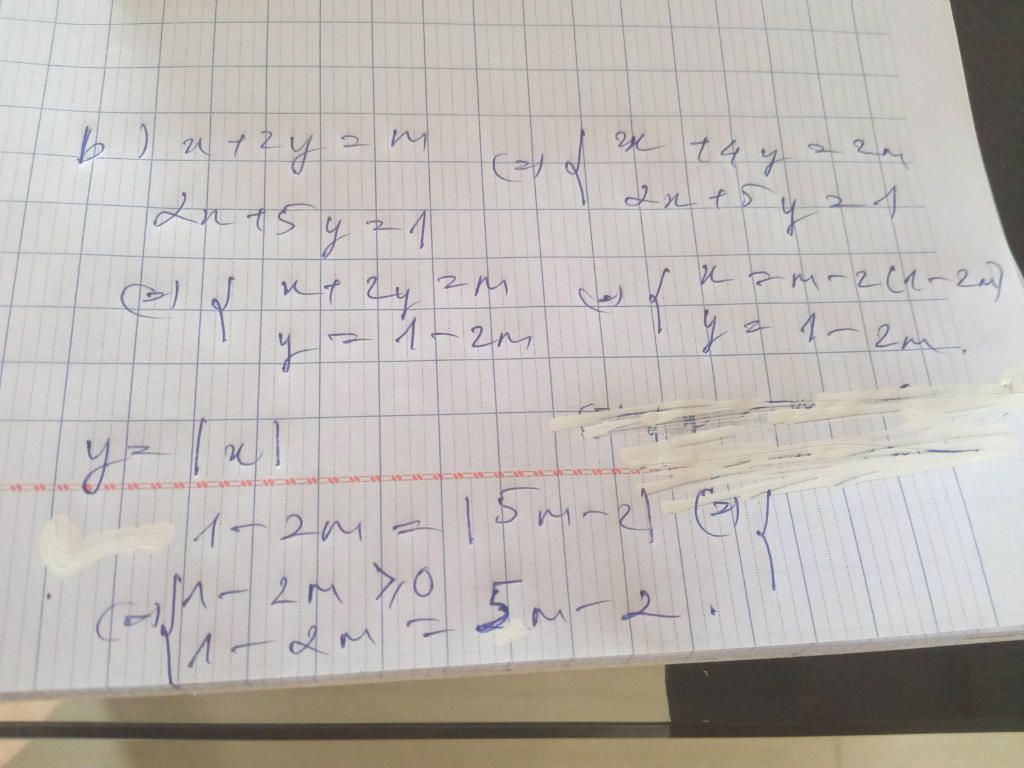 b) x + 2y = m (=) { 2x + 4y = 2m
2x + 5y = 1 2x + 5y = 1
(=) { x + 2y = m (=) { x = m - 2(1 - 2m)
y = 1 - 2m y = 1 - 2m.
y = |x|
1 - 2m = |5m - 2| (=) {
(=) { 1 - 2m ⩾ 0
1 - 2m = 5m - 2.